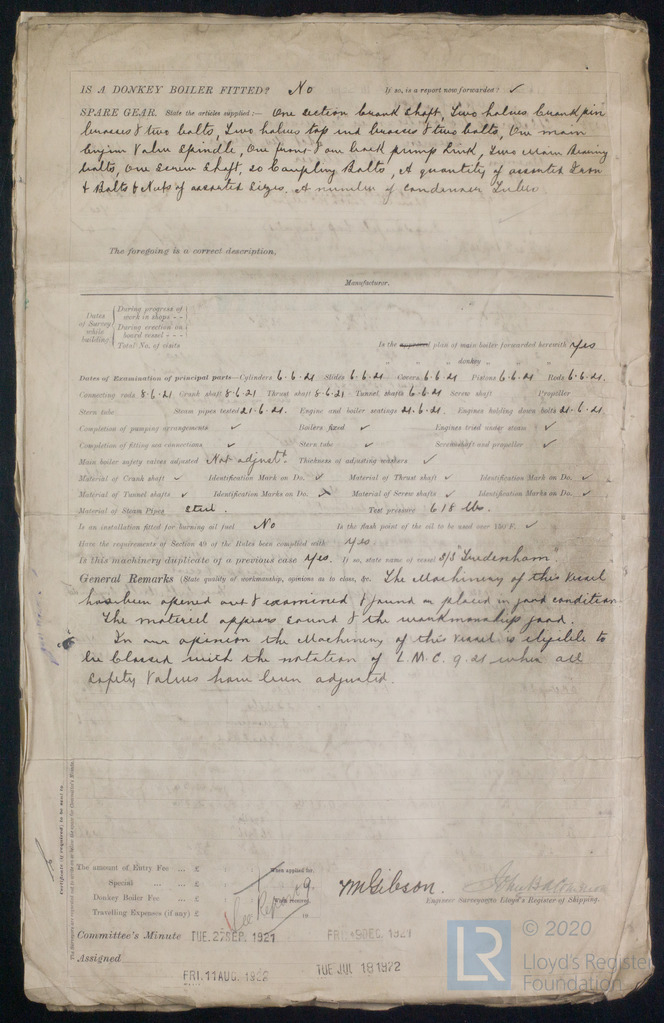 IS A DONKEY BOILER FITTED? No If so, is a report now forwarded? ✓
SPARE GEAR. State the articles supplied:— One section Crank Shaft, Two halves Crank pin
brasses & two bolts, Two halves top end brasses & two bolts, One main
Engine Valve Spindle, One front & one back pump Link, Two Main Bearing
bolts, One Screw Shaft, 20 Coupling Bolts, A quantity of assorted Iron
& Bolts & Nuts of assorted Sizes, A number of Condenser Tubes
The foregoing is a correct description,
Manufacturer.
Dates of Survey while building
During progress of work in shops - -
During erection on board vessel - - -
Total No. of visits
Is the approved plan of main boiler forwarded herewith Yes
" " " donkey " " "
Dates of Examination of principal parts—Cylinders 6.6.21 Slides 6.6.21 Covers 6.6.21 Pistons 6.6.21 Rods 6.6.21.
Connecting rods 8.6.21 Crank shaft 8.6.21 Thrust shaft 8.6.21 Tunnel shafts 6.6.21 Screw shaft Propeller
Stern tube Steam pipes tested 21.6.21. Engine and boiler seatings 21.6.21. Engines holding down bolts 21.6.21.
Completion of pumping arrangements ✓ Boilers fixed ✓ Engines tried under steam ✓
Completion of fitting sea connections ✓ Stern tube ✓ Screw shaft and propeller ✓
Main boiler safety valves adjusted Not adjustd. Thickness of adjusting washers ✓
Material of Crank shaft ✓ Identification Mark on Do. ✓ Material of Thrust shaft ✓ Identification Mark on Do. ✓
Material of Tunnel shafts ✓ Identification Marks on Do. ✓ Material of Screw shafts ✓ Identification Marks on Do. ✓
Material of Steam Pipes Steel. Test pressure 618 lbs.
Is an installation fitted for burning oil fuel No Is the flash point of the oil to be used over 150°F. ✓
Have the requirements of Section 49 of the Rules been complied with Yes
Is this machinery duplicate of a previous case Yes. If so, state name of vessel S/S
General Remarks (State quality of workmanship, opinions as to class, &c. The Machinery of this Vessel
has been opened out & examined & found or placed in good condition
The material appears sound & the workmanship good.
In our opinion the Machinery of this Vessel is eligible to
be Classed with the notation of L.M.C. 9.21 when all
Safety Valves have been adjusted.
Certificate (if required) to be sent to
The amount of Entry Fee ... £ When applied for
Special ... ... £ 19
Donkey Boiler Fee ... £ When received,
Travelling Expenses (if any) £ 19
See Rep
Wm Gibson.
Engineer Surveyor to Lloyd's Register of Shipping.
Committee's Minute TUE. 27 SEP. 1921 FRI. 9 DEC. 1921
Assigned
FRI. 11 AUG. 1922 TUE JUL 18 1922
LR
© 2020
Lloyd's Register
Foundation